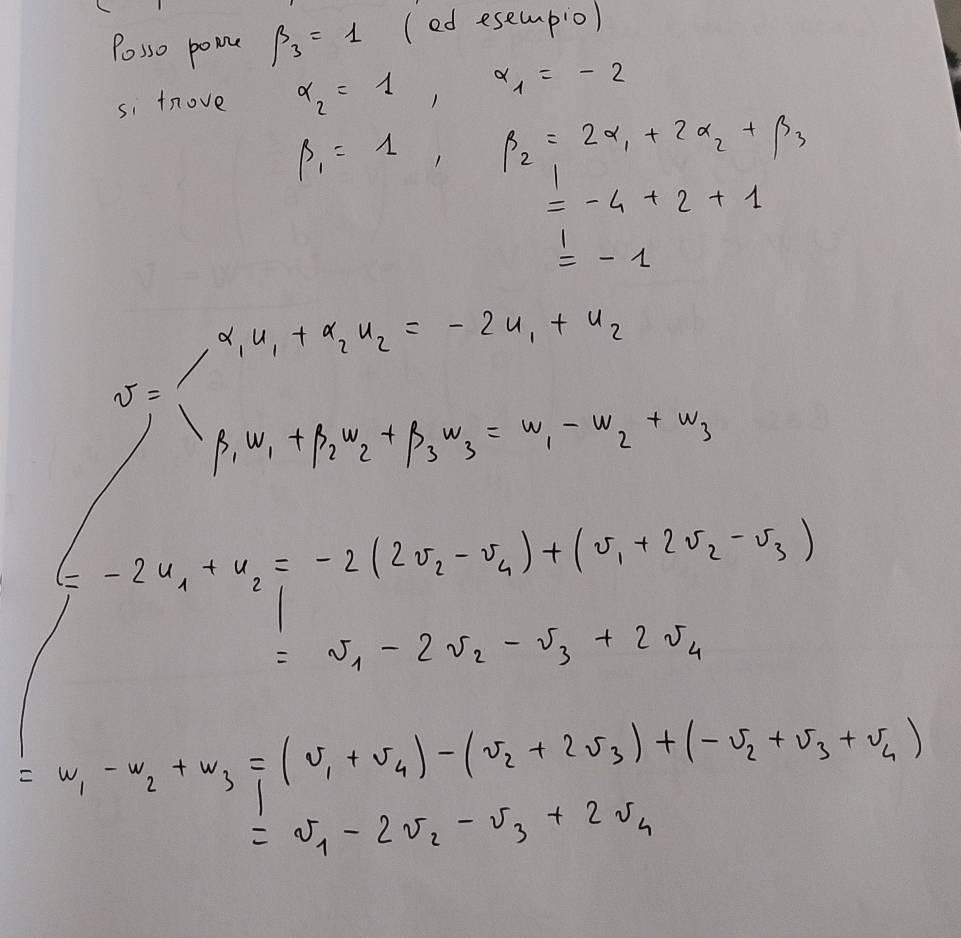 Posso porre β₃ = 1 (ad esempio)
si trova α₂ = 1 , α₁ = - 2
β₁ = 1 , β₂ = 2α₁ + 2α₂ + β₃
= - 4 + 2 + 1
= - 1
α₁u₁ + α₂u₂ = - 2u₁ + u₂
v =
β₁w₁ + β₂w₂ + β₃w₃ = w₁ - w₂ + w₃
= - 2u₁ + u₂ = - 2(2v₂ - v₄) + (v₁ + 2v₂ - v₃)
= v₁ - 2v₂ - v₃ + 2v₄
= w₁ - w₂ + w₃ = (v₁ + v₄) - (v₂ + 2v₃) + (- v₂ + v₃ + v₄)
= v₁ - 2v₂ - v₃ + 2v₄